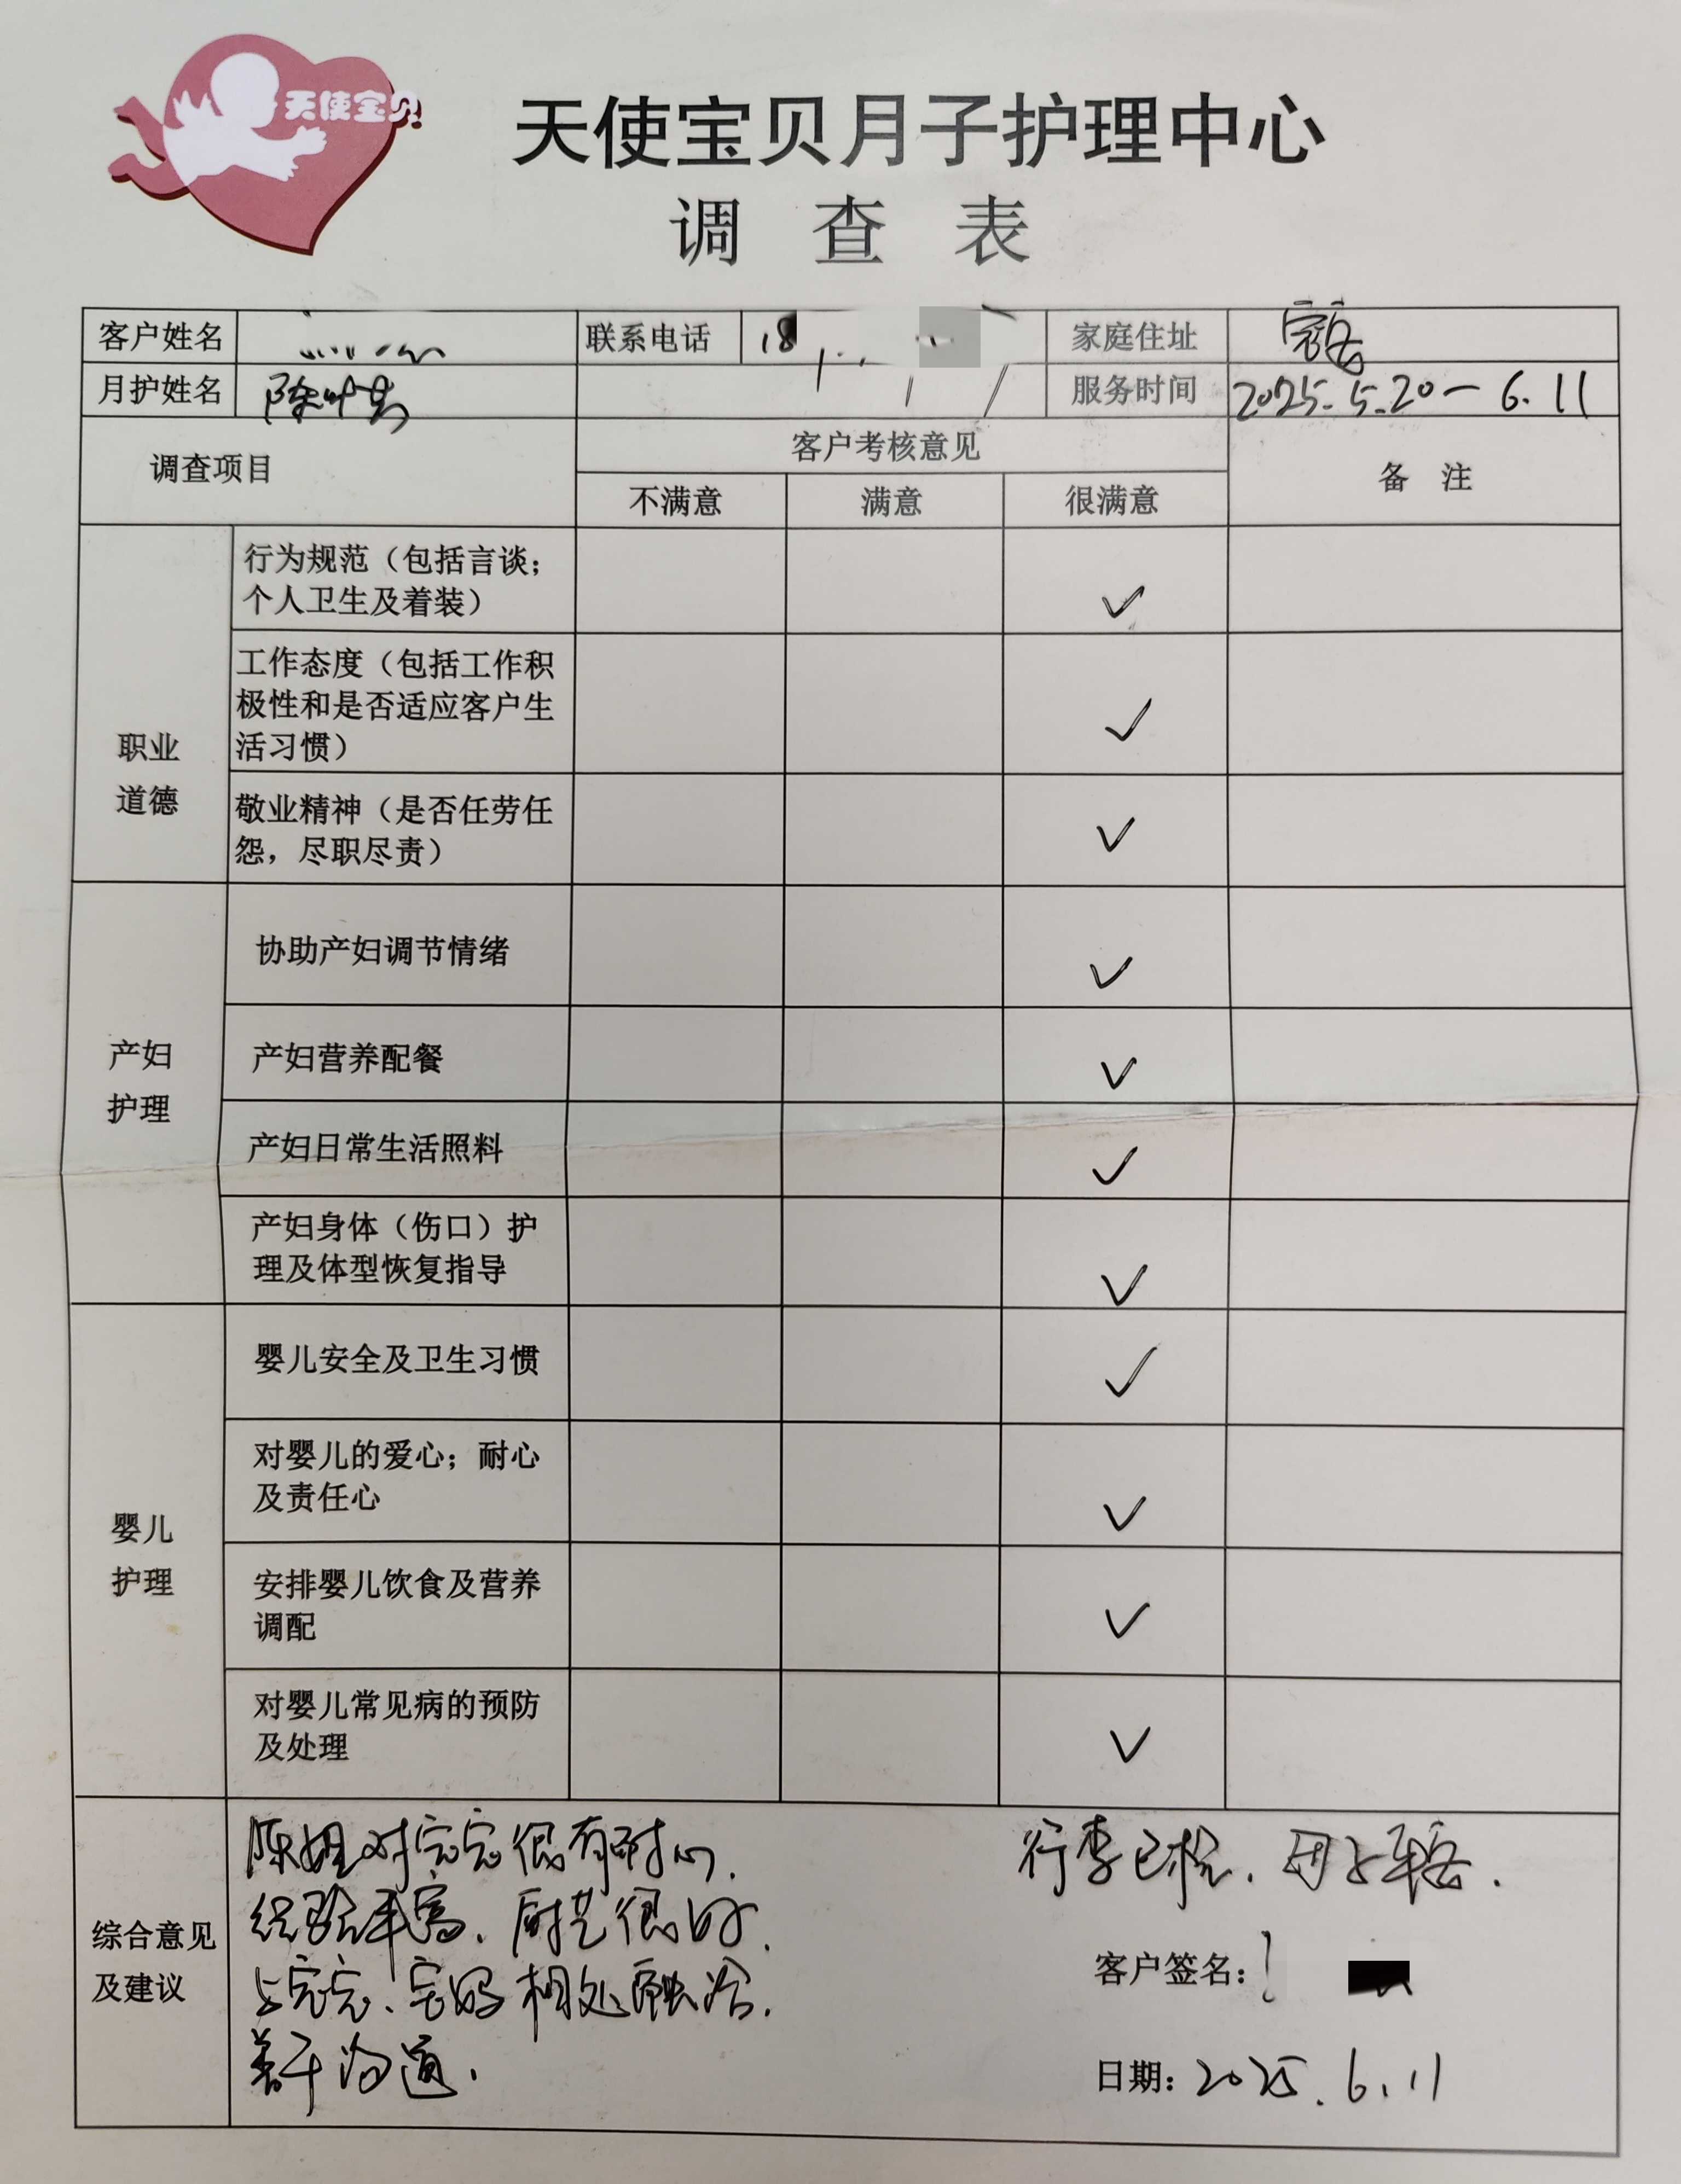 天使宝贝
天使宝贝月子护理中心
调查表
客户姓名 联系电话 18 家庭住址
月护姓名 陈 服务时间 2025.5.20-6.11
调查项目 客户考核意见 备注
不满意 满意 很满意
职业道德
行为规范（包括言谈；
个人卫生及着装） ✓
工作态度（包括工作积
极性和是否适应客户生
活习惯） ✓
敬业精神（是否任劳任
怨，尽职尽责） ✓
产妇护理
协助产妇调节情绪 ✓
产妇营养配餐 ✓
产妇日常生活照料 ✓
产妇身体（伤口）护
理及体型恢复指导 ✓
婴儿护理
婴儿安全及卫生习惯 ✓
对婴儿的爱心；耐心
及责任心 ✓
安排婴儿饮食及营养
调配 ✓
对婴儿常见病的预防
及处理 ✓
综合意见及建议
陈姐对宝宝很有耐心.
经验丰富、厨艺很好.
与宝宝、宝妈相处融洽.
善于沟通.
行李已检.
客户签名：
日期：2025.6.11